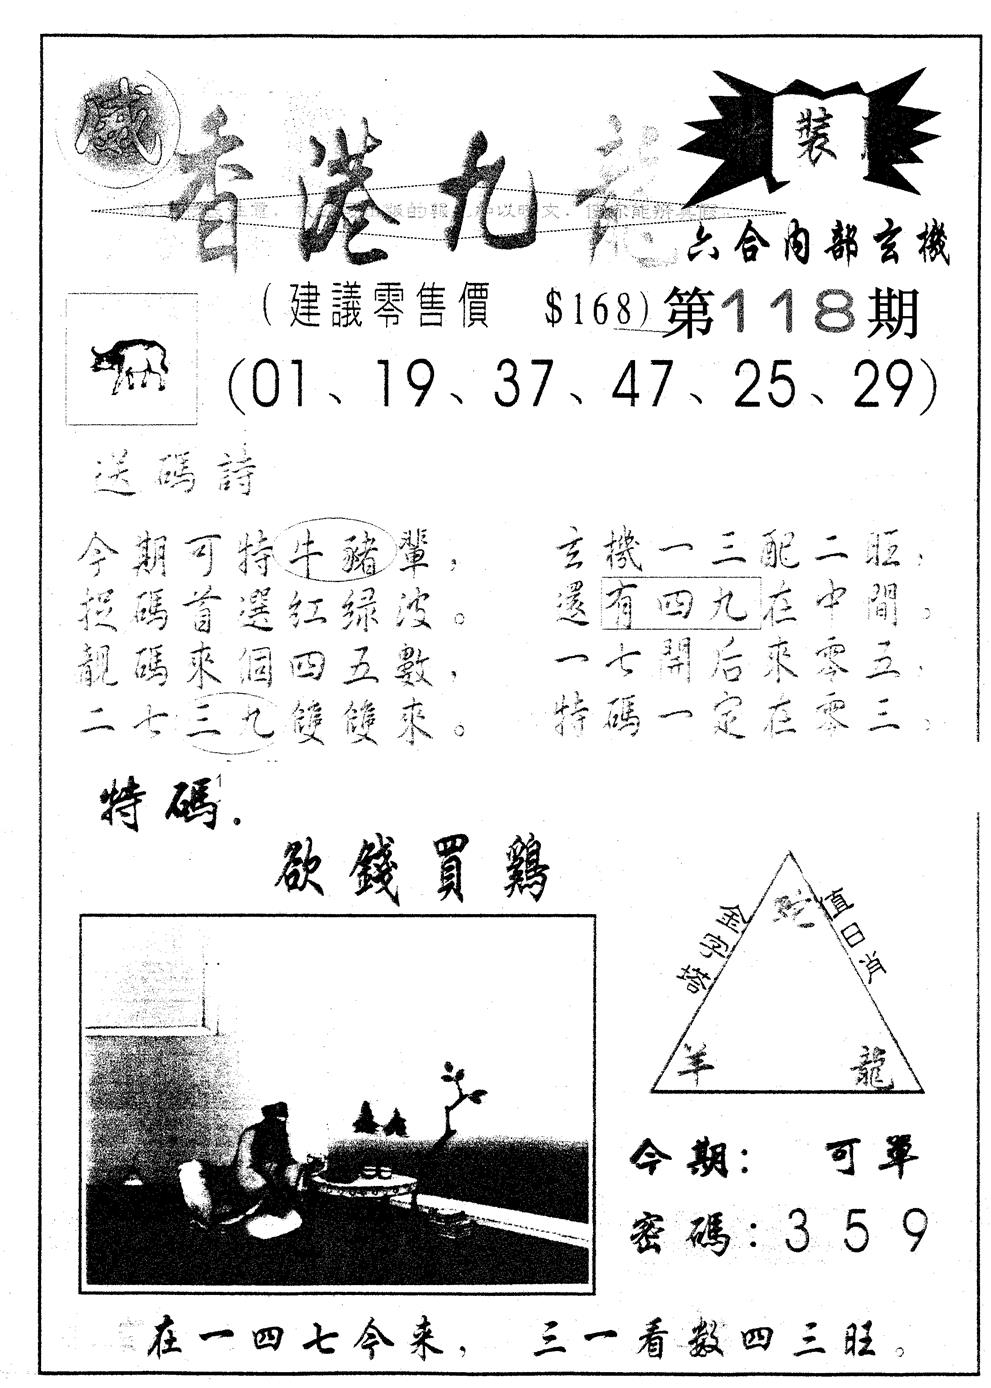 香港九龍
裝
六合内部玄機
(建議零售價 $168)
第118期
(01、19、37、47、25、29)
送碼詩
今期可特牛豬輩，
捉碼首選紅绿波。
靚碼來個四五數，
二七三九雙雙來。
玄機一三配二旺，
還有四九在中間。
一七開后來零五，
特碼一定在零三。
特碼.
欲錢買鷄
金字塔
值日肖
蛇
羊
龍
今期： 可單
密碼：3 5 9
在一四七今来， 三一看数四三旺。